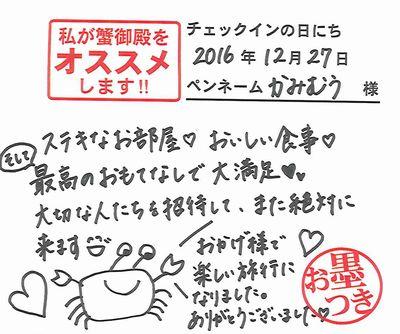 私が蟹御殿を
オススメ
します!!
チェックインの日にち
2016年12月27日
ペンネーム かみむう 様
ステキなお部屋♡ おいしい食事♡
そして
最高のおもてなしで大満足♥♥
大切な人たちを招待して、また絶対に
来ます
おかげ様で
楽しい旅行に
なりました。
ありがとうございました
お墨つき